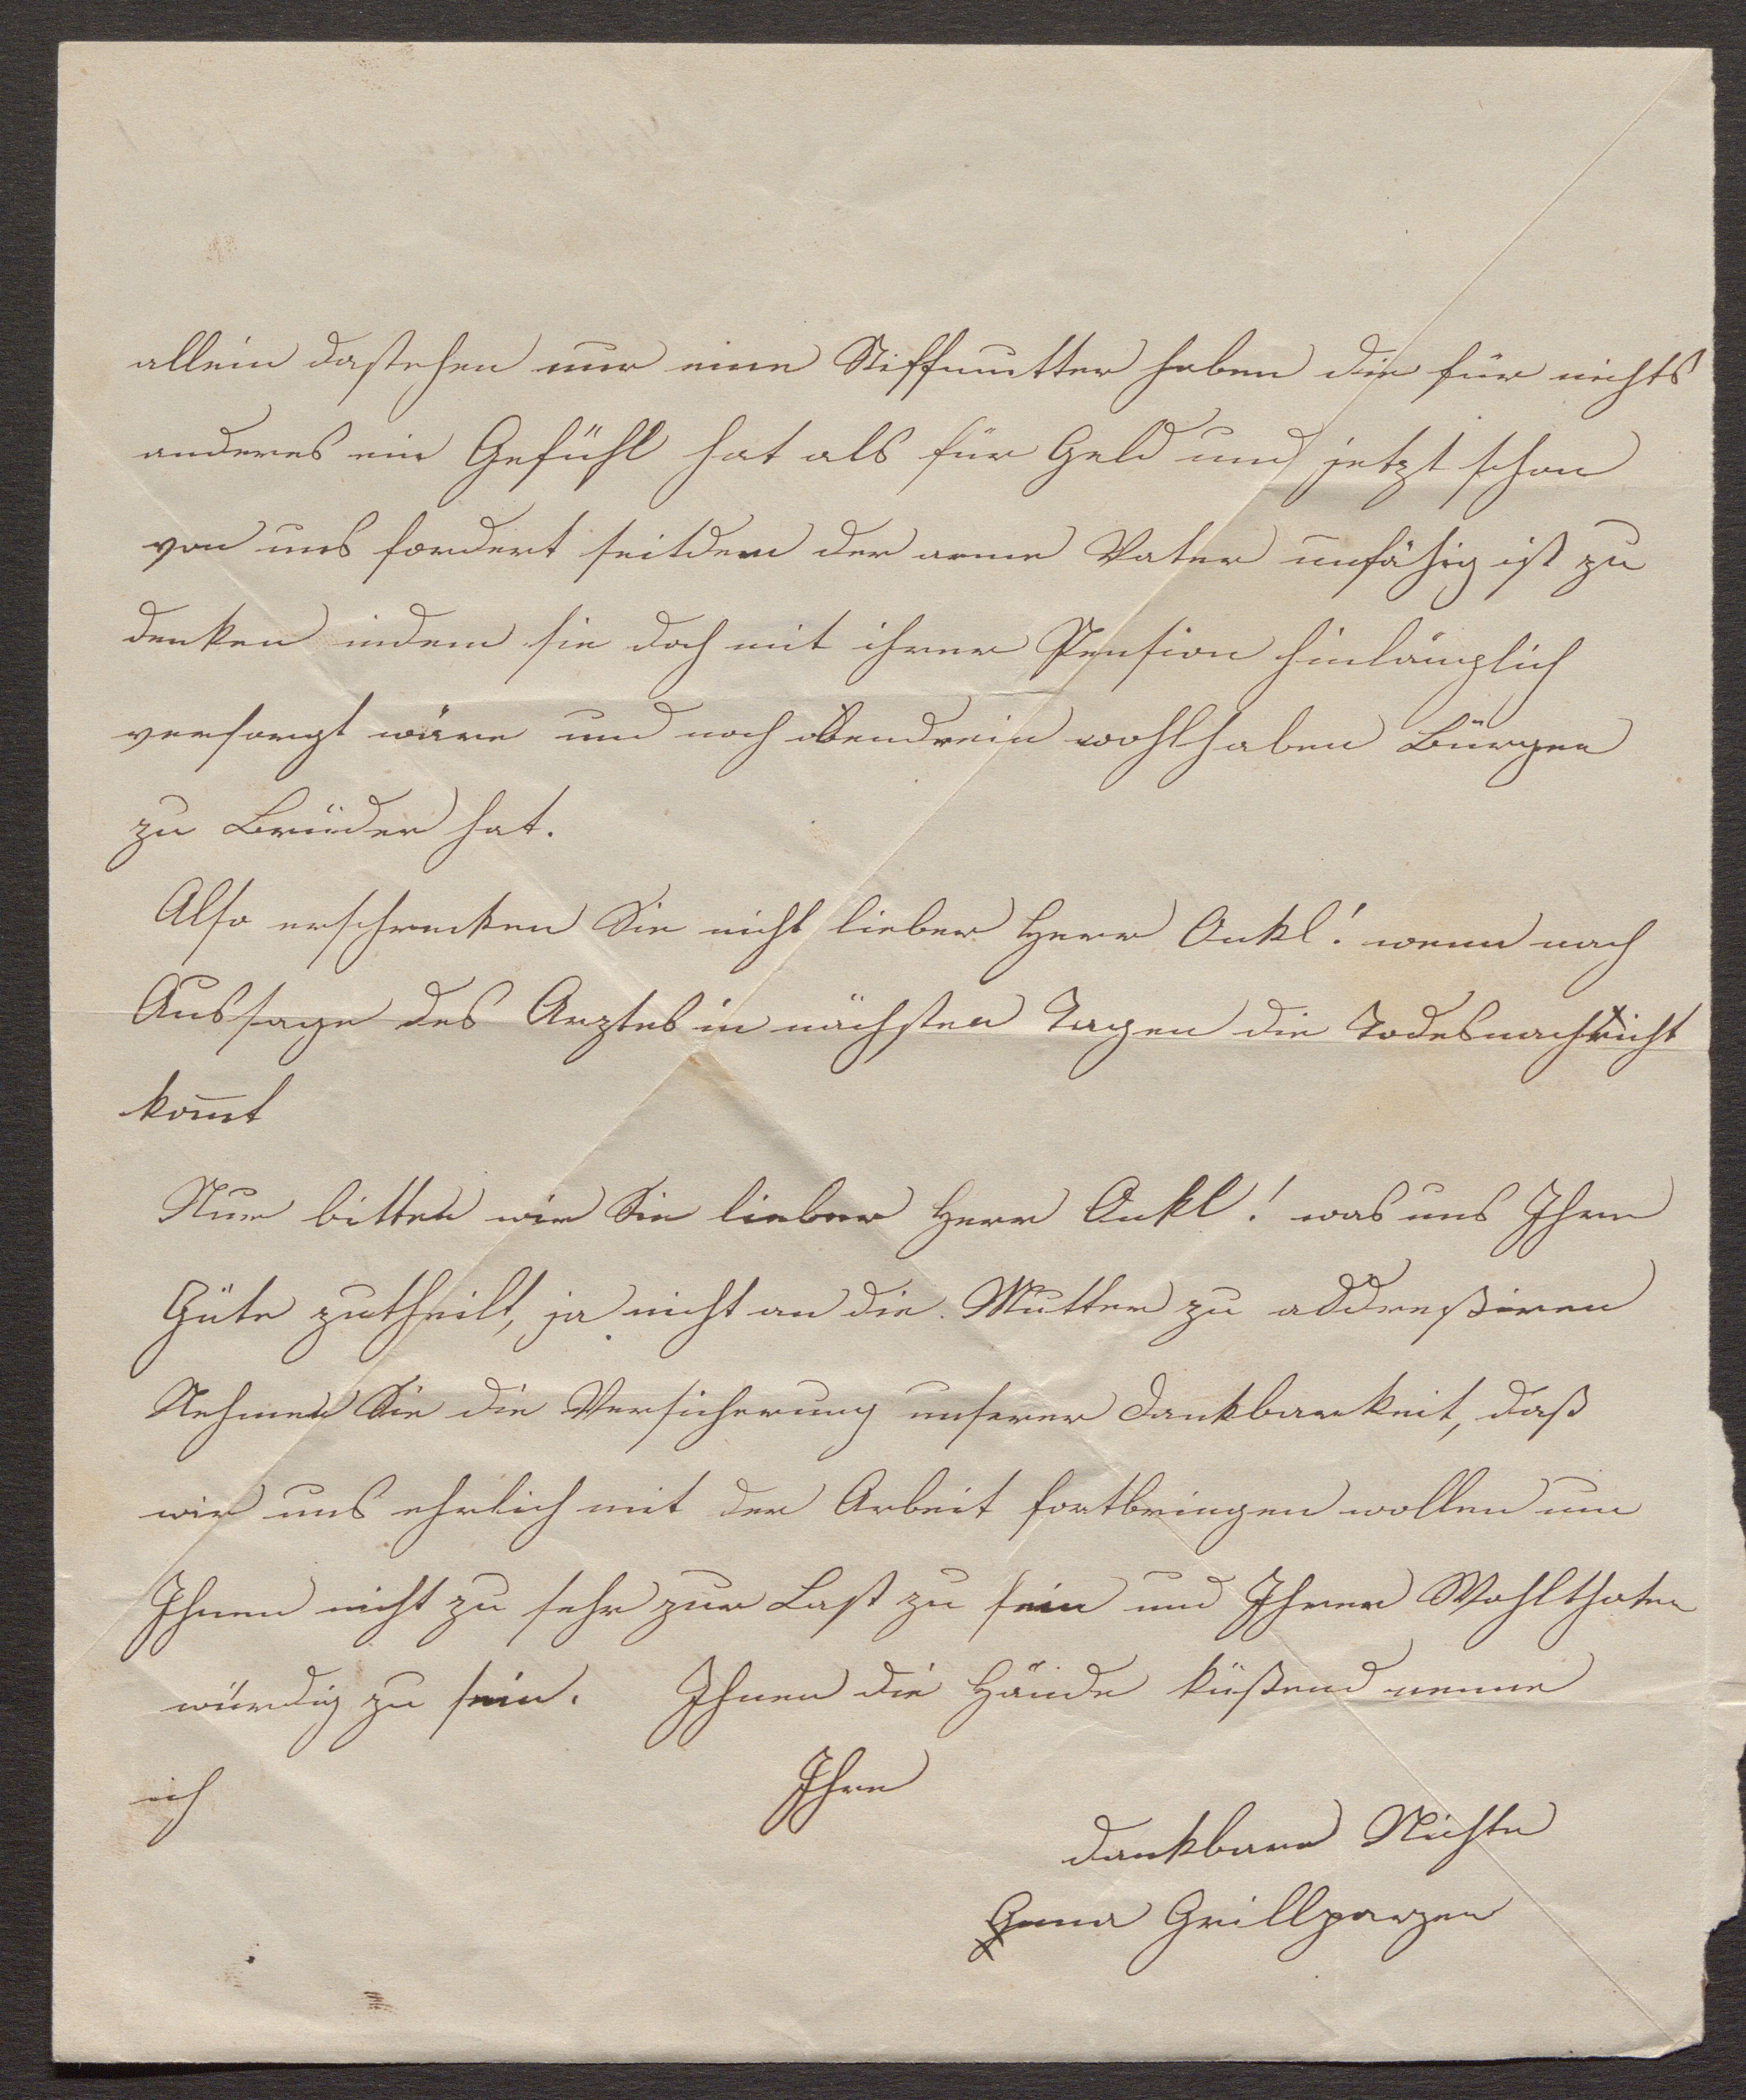 allein dastehen nur eine Stiffmutter haben die für nichts
anderes ein Gefühl hat als für Geld und jetzt schon
von uns fordert seitdem der arme Vater unfähig ist zu
denken indem sie doch mit ihrer Pension hinlänglich
versorgt wäre und noch obendrein wohlhaben Bürger
zu Brüder hat.
Also erschrecken Sie nicht lieber Herr Onkl! wenn nach
Aussage des Arztes in nächsten Tagen die Todesnachricht
kom̅t
Nur bitten wir Sie lieber Herr Onkl! was uns Ihre
Güte zutheilt, ja nicht an die Mutter zu addreßiren
Nehmen Sie die Versicherung unserer Dankbarkeit, daß
wir uns ehrlich mit der Arbeit fortbringen wollen um
Ihnen nicht zu sehr zur Last zu sein und Ihrer Wohlthaten
würdig zu sein. Ihnen die Hände küßend nenne
ich Ihre
dankbare Nichte
Grillparzer